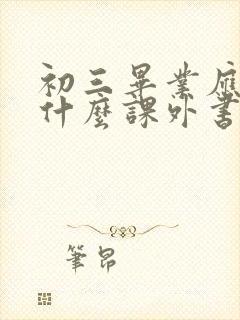 初三畢業應
什麼課外書
筆帛